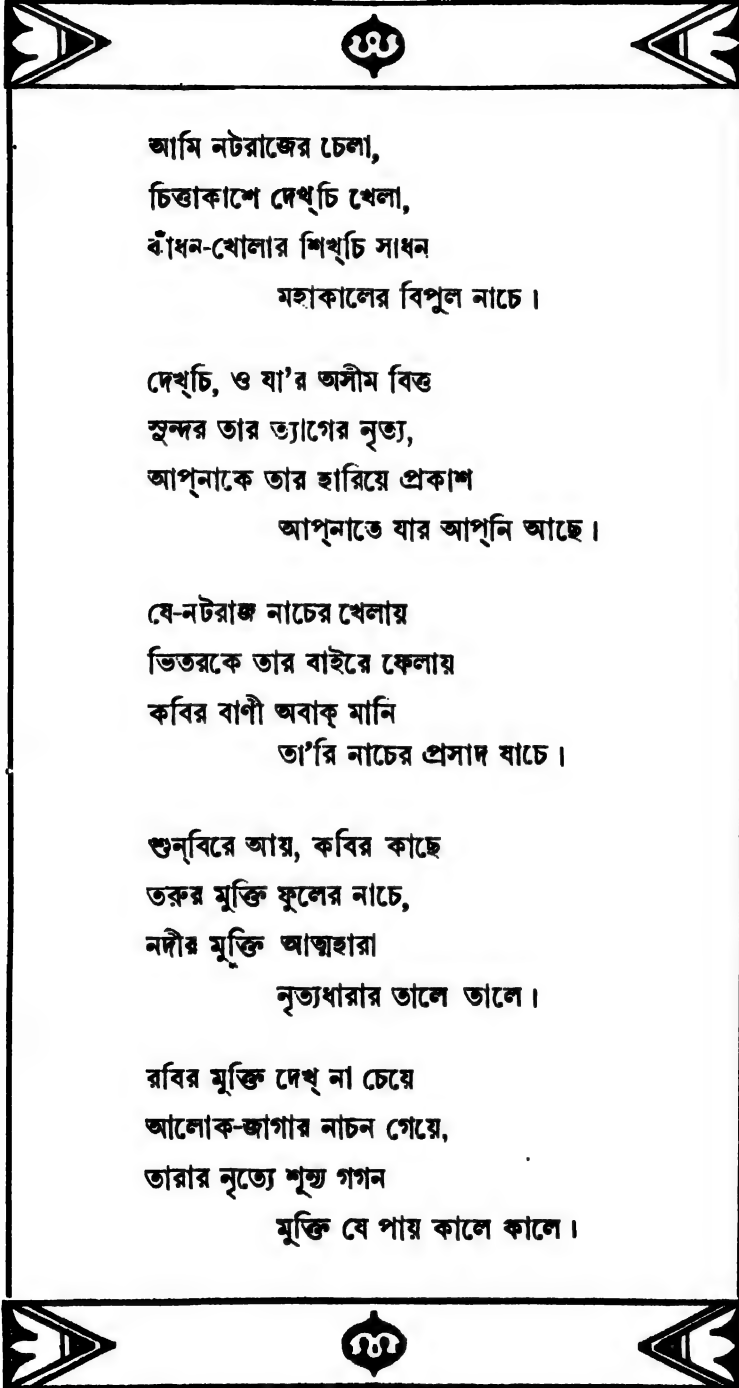 আমি নটরাজের চেলা,
চিত্তাকাশে দেখ্‌চি খেলা,
বাঁধন-খোলার শিখ্‌চি সাধন
মহাকালের বিপুল নাচে।
দেখ্‌চি, ও যা'র অসীম বিত্ত
সুন্দর তার ত্যাগের নৃত্য,
আপ্‌নাকে তার হারিয়ে প্রকাশ
আপ্‌নাতে যার আপ্‌নি আছে।
যে-নটরাজ নাচের খেলায়
ভিতরকে তার বাইরে ফেলায়
কবির বাণী অবাক্ মানি
তা'রি নাচের প্রসাদ যাচে।
শুন্‌বিরে আয়, কবির কাছে
তরুর মুক্তি ফুলের নাচে,
নদীর মুক্তি আত্মহারা
নৃত্যধারার তালে তালে।
রবির মুক্তি দেখ্ না চেয়ে
আলোক-জাগার নাচন গেয়ে,
তারার নৃত্যে শূন্য গগন
মুক্তি যে পায় কালে কালে।